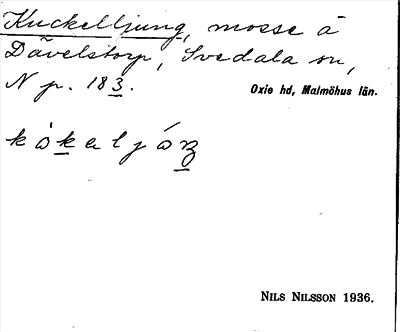 Kuckelljung, mosse å
Dävelstorp, Svedala sn,
N p. 183.
Oxie hd, Malmöhus län.
NILS NILSSON 1936.